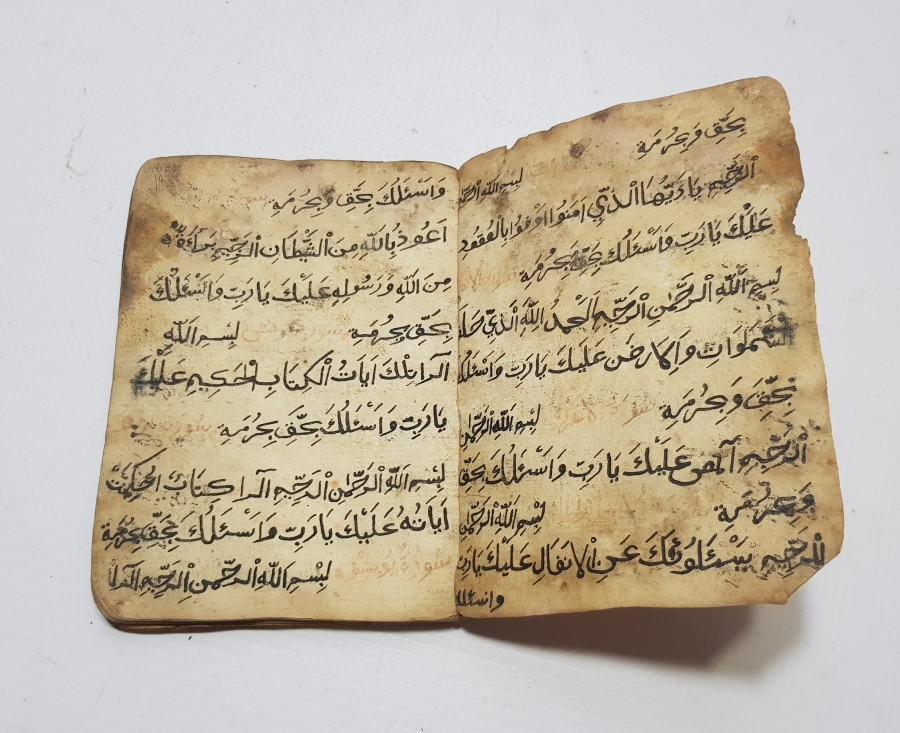 بِحَقِّ وَبِحُرْمَةِ
بِسْمِ اللّٰهِ الرَّحْمٰنِ
الرَّحِيمِ يَاءَيُّهَا الَّذِي اٰمَنُوا اَوْفُوا بِالْعُقُودِ
عَلَيْكَ يَا رَبِّ وَاَسْئَلُكَ بِحَقِّ بِحُرْمَةِ
بِسْمِ اللّٰهِ الرَّحْمٰنِ الرَّحِيمِ اَلْحَمْدُ اللّٰهِ الَّذِي خَلَقَ
السَّمٰوَاتِ وَالْاَرْضَ عَلَيْكَ يَا رَبِّ وَاَسْئَلُكَ
بِحَقِّ وَبِحُرْمَةِ سورة الاعراف بِسْمِ اللّٰهِ الرَّحْمٰنِ
الرَّحِيمِ آلمص عَلَيْكَ يَا رَبِّ وَاَسْئَلُكَ بِحَقِّ
وَبِحُرْمَةِ بِسْمِ اللّٰهِ الرَّحْمٰنِ
الرَّحِيمِ يَسْئَلُونَكَ عَنِ الْاَنْفَالِ عَلَيْكَ يَا رَبِّ
وَاَسْئَلُكَ
وَاَسْئَلُكَ بِحَقِّ وَبِحُرْمَةِ
اَعُوذُ بِاللّٰهِ مِنَ الشَّيْطَانِ الرَّجِيمِ بَرَآءَةٌ
مِنَ اللّٰهِ وَرَسُولِهِ عَلَيْكَ يَا رَبِّ وَاَسْئَلُكَ
بِحَقِّ بِحُرْمَةِ سورة يونس بِسْمِ اللّٰهِ
آلرا تِلْكَ اٰيَاتُ الْكِتَابِ الْحَكِيمِ عَلَيْكَ
يَا رَبِّ وَاَسْئَلُكَ بِحَقِّ بِحُرْمَةِ سورة هود
بِسْمِ اللّٰهِ الرَّحْمٰنِ الرَّحِيمِ آلرا كِتَابٌ اُحْكِمَتْ
اٰيَاتُهُ عَلَيْكَ يَا رَبِّ وَاَسْئَلُكَ بِحَقِّ بِحُرْمَةِ
سورة يوسف بِسْمِ اللّٰهِ الرَّحْمٰنِ الرَّحِيمِ آلرا